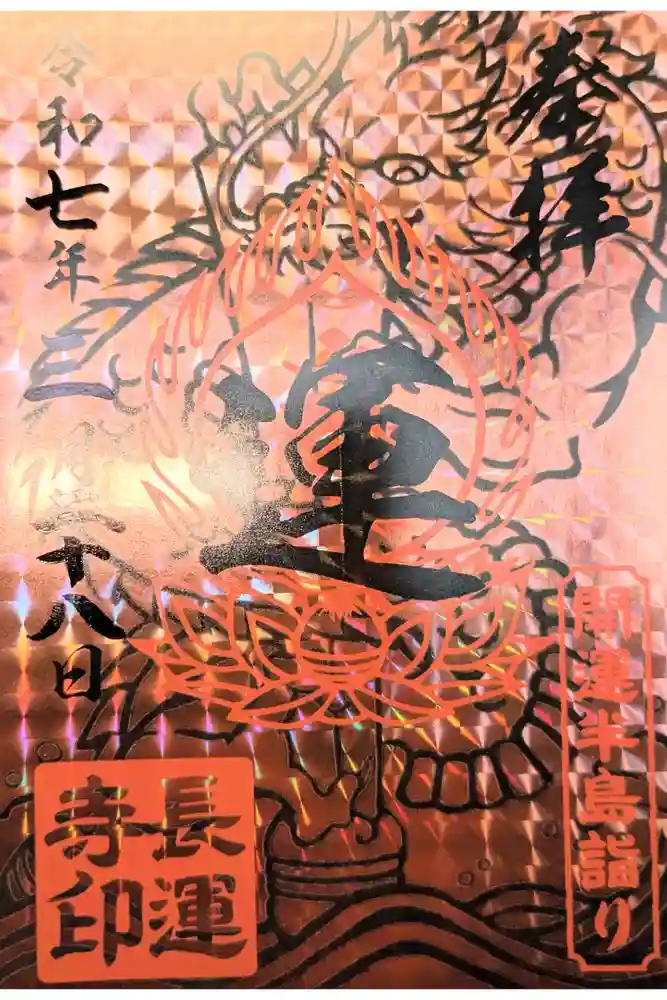 奉拝
運
開運半島詣り
令和七年三月二十八日
長運
寺印